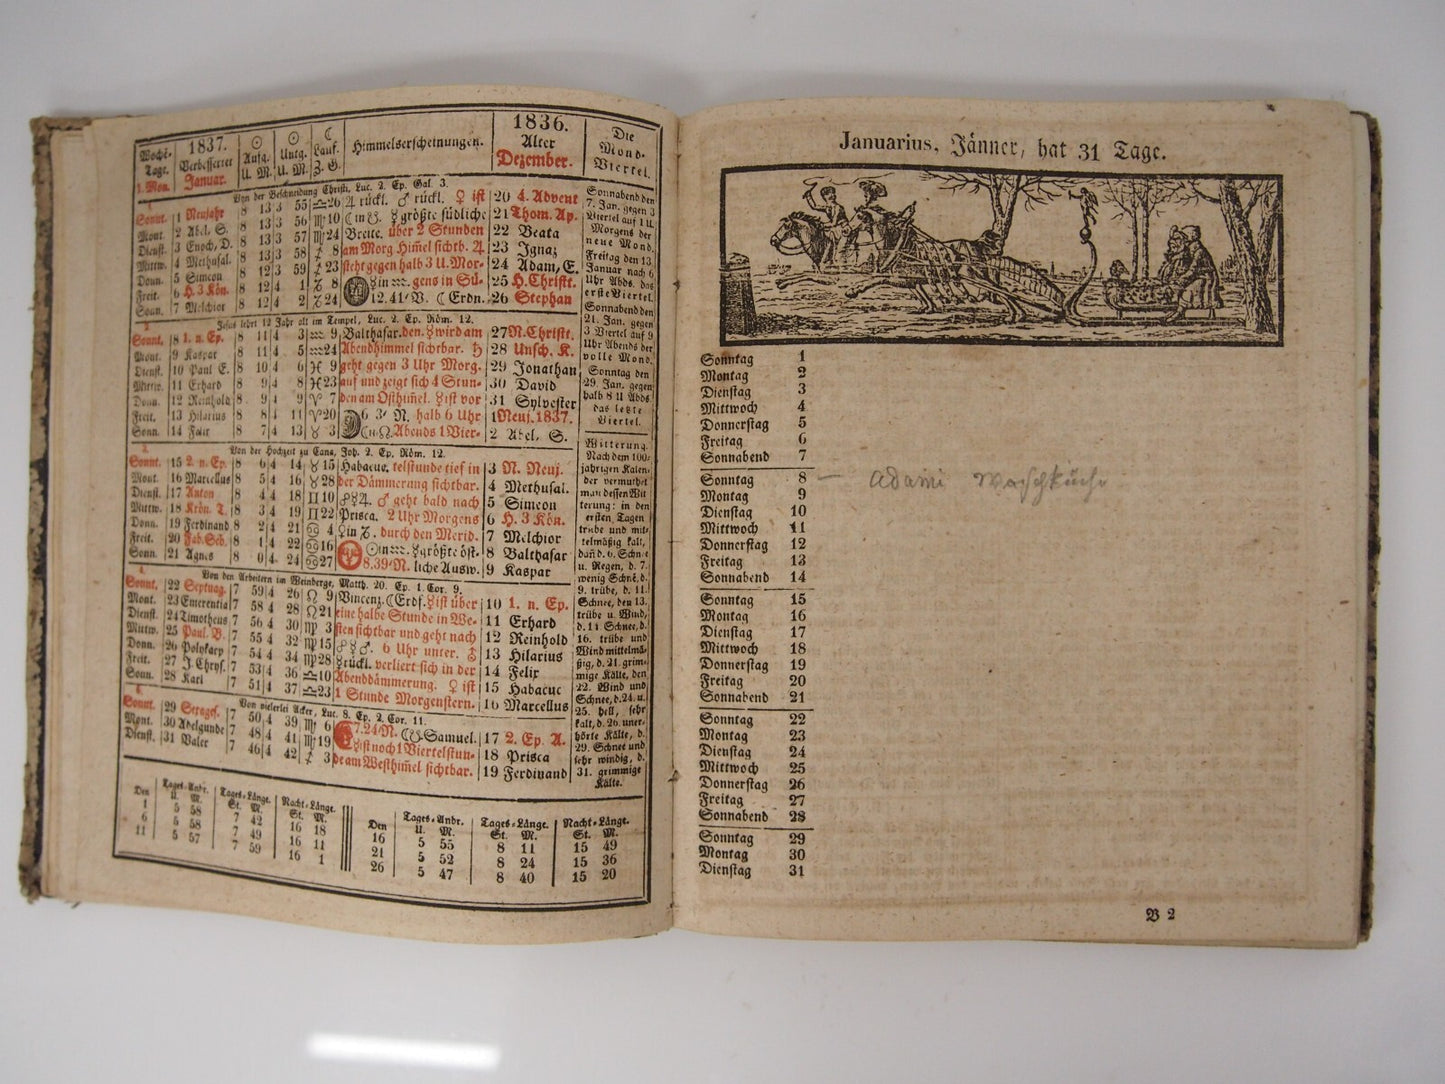 Wochē-Tage.
1. Mon.
1837.
Verbesserter
Januar.
☉
Aufg.
U. M.
☉
Untg.
U. M.
☾
Lauf.
Z. G.
Himmelserscheinungen.
1836.
Alter
Dezember.
Die
Mond-
Viertel.
Von der Beschneidung Christi, Luc. 2. Ep. Gal. 3.
Sonnt. 1 Neujahr 8 13 3 55
Mont. 2 Abel, S. 8 13 3 56
Dienst. 3 Enoch, D. 8 13 3 57
Mittw. 4 Methusal. 8 13 3 58
Donn. 5 Simeon 8 12 3 59
Freit. 6 H. 3 Kön. 8 12 4 1
Sonn. 7 Melchior 8 12 4 2
♃ rückl. ♂ rückl. ♀ ist
☾ in ☋. ☿ größte südliche
Breite. über 2 Stunden
am Morg Him̃el sichtb. ♃
steht gegen halb 3 U. Mor-
☿ in ♒. gens in Sü-
12. 41′ V. ☾ Erdn.
20 4. Advent
21 Thom. Ap.
22 Beata
23 Ignaz
24 Adam, E.
25 H. Christt.
26 Stephan
Jesus lehrt 12 Jahr alt im Tempel, Luc. 2. Ep. Röm. 12.
Sonnt. 8 1. n. Ep. 8 11 4 3
Mont. 9 Kaspar 8 11 4 5
Dienst. 10 Paul E. 8 10 4 6
Mittw. 11 Erhard 8 9 4 8
Donn. 12 Reinhold 8 9 4 9
Freit. 13 Hilarius 8 8 4 11
Sonn. 14 Felix 8 7 4 13
Balthasar. den. ☿ wird am
Abendhimmel sichtbar. ♄
geht gegen 3 Uhr Morg.
auf und zeigt sich 4 Stun-
den am Osthim̃el. ♀ ist vor
6 3′ N. halb 6 Uhr
☾ in ☊. Abends 1 Vier-
27 N. Christt.
28 Unsch. K.
29 Jonathan
30 David
31 Sylvester
1 Neuj. 1837.
2 Abel, S.
Von der Hochzeit zu Cana, Joh. 2. Ep. Röm. 12.
Sonnt. 15 2. n. Ep. 8 6 4 14
Mont. 16 Marcellus 8 5 4 16
Dienst. 17 Anton 8 4 4 18
Mittw. 18 Krön. T. 8 3 4 19
Donn. 19 Ferdinand 8 2 4 21
Freit. 20 Fab. Seb. 8 1 4 22
Sonn. 21 Agnes 8 0 4 24
Habacuc. telstunde tief in
der Dämmerung sichtbar.
♂ geht bald nach
Prisca. 2 Uhr Morgens
♀ in ♑. durch den Merid.
☉ in ♒. ☿ größte öst-
8. 39′ N. liche Ausw.
3 N. Neuj.
4 Methusal.
5 Simeon
6 H. 3 Kön.
7 Melchior
8 Balthasar
9 Kaspar
Von den Arbeitern im Weinberge, Matth. 20. Ep. 1. Cor. 9.
Sonnt. 22 Septuag. 7 59 4 26
Mont. 23 Emerentia 7 58 4 28
Dienst. 24 Timotheus 7 56 4 30
Mittw. 25 Paul. B. 7 55 4 32
Donn. 26 Polykarp 7 54 4 34
Freit. 27 J. Chrys. 7 53 4 36
Sonn. 28 Karl 7 51 4 37
Vincenz. ☾ Erdf. ☿ ist über
eine halbe Stunde in We-
sten sichtbar und geht nach
6 Uhr unter.
☿ rückl. verliert sich in der
Abenddämmerung. ♀ ist
1 Stunde Morgenstern.
10 1. n. Ep.
11 Erhard
12 Reinhold
13 Hilarius
14 Felix
15 Habacuc
16 Marcellus
Von vielerlei Acker, Luc. 8. Ep. 2. Cor. 11.
Sonnt. 29 Sexages. 7 50 4 39
Mont. 30 Adelgunde 7 48 4 41
Dienst. 31 Valer 7 46 4 42
7. 24′ N. ☾ ☋. Samuel.
☿ ist noch 1 Viertelstun-
de am Westhim̃el sichtbar.
17 2. Ep. A.
18 Prisca
19 Ferdinand
Sonnabend den
7. Jan. gegen 3
Viertel auf 1 U.
Morgens der
neue Mond.
Freitag den 13.
Januar nach 6
Uhr Abds. das
erste Viertel.
Sonnabend den
21. Jan. gegen
3 Viertel auf 9
Uhr Abends der
volle Mond.
Sonntag den
29. Jan. gegen
halb 8 U Abds.
das letzte
Viertel.
Witterung.
Nach dem 100-
jährigen Kalen-
der vermuthet
man dessen Wit
terung: in den
ersten Tagen
trübe und mit-
telmäßig kalt,
dan̄ d. 6. Schnee
u. Regen, d. 7.
wenig Schnē, d.
9. trübe, d. 11.
Schnee, den 13.
trübe u. Wind,
d. 14 Schnee, d.
16. trübe und
Wind mittelmä-
ßig, d. 21. grim-
mige Kälte, den
22. Wind und
Schnee, d. 24. u.
25. hell, sehr
kalt, d. 26. uner-
hörte Kälte, d.
29. Schnee und
sehr windig, d.
31. grimmige
Kälte.
Den Tages-Anbr. U. M. Tages-Länge. St. M. Nacht-Länge. St. M.
1 5 58 7 42 16 18
6 5 58 7 49 16 11
11 5 57 7 59 16 1
Den Tages-Anbr. U. M. Tages-Länge. St. M. Nacht-Länge. St. M.
16 5 55 8 11 15 49
21 5 52 8 24 15 36
26 5 47 8 40 15 20
Januarius, Jänner, hat 31 Tage.
Sonntag 1
Montag 2
Dienstag 3
Mittwoch 4
Donnerstag 5
Freitag 6
Sonnabend 7
Sonntag 8 – Adami Waschküche
Montag 9
Dienstag 10
Mittwoch 11
Donnerstag 12
Freitag 13
Sonnabend 14
Sonntag 15
Montag 16
Dienstag 17
Mittwoch 18
Donnerstag 19
Freitag 20
Sonnabend 21
Sonntag 22
Montag 23
Dienstag 24
Mittwoch 25
Donnerstag 26
Freitag 27
Sonnabend 28
Sonntag 29
Montag 30
Dienstag 31
B 2